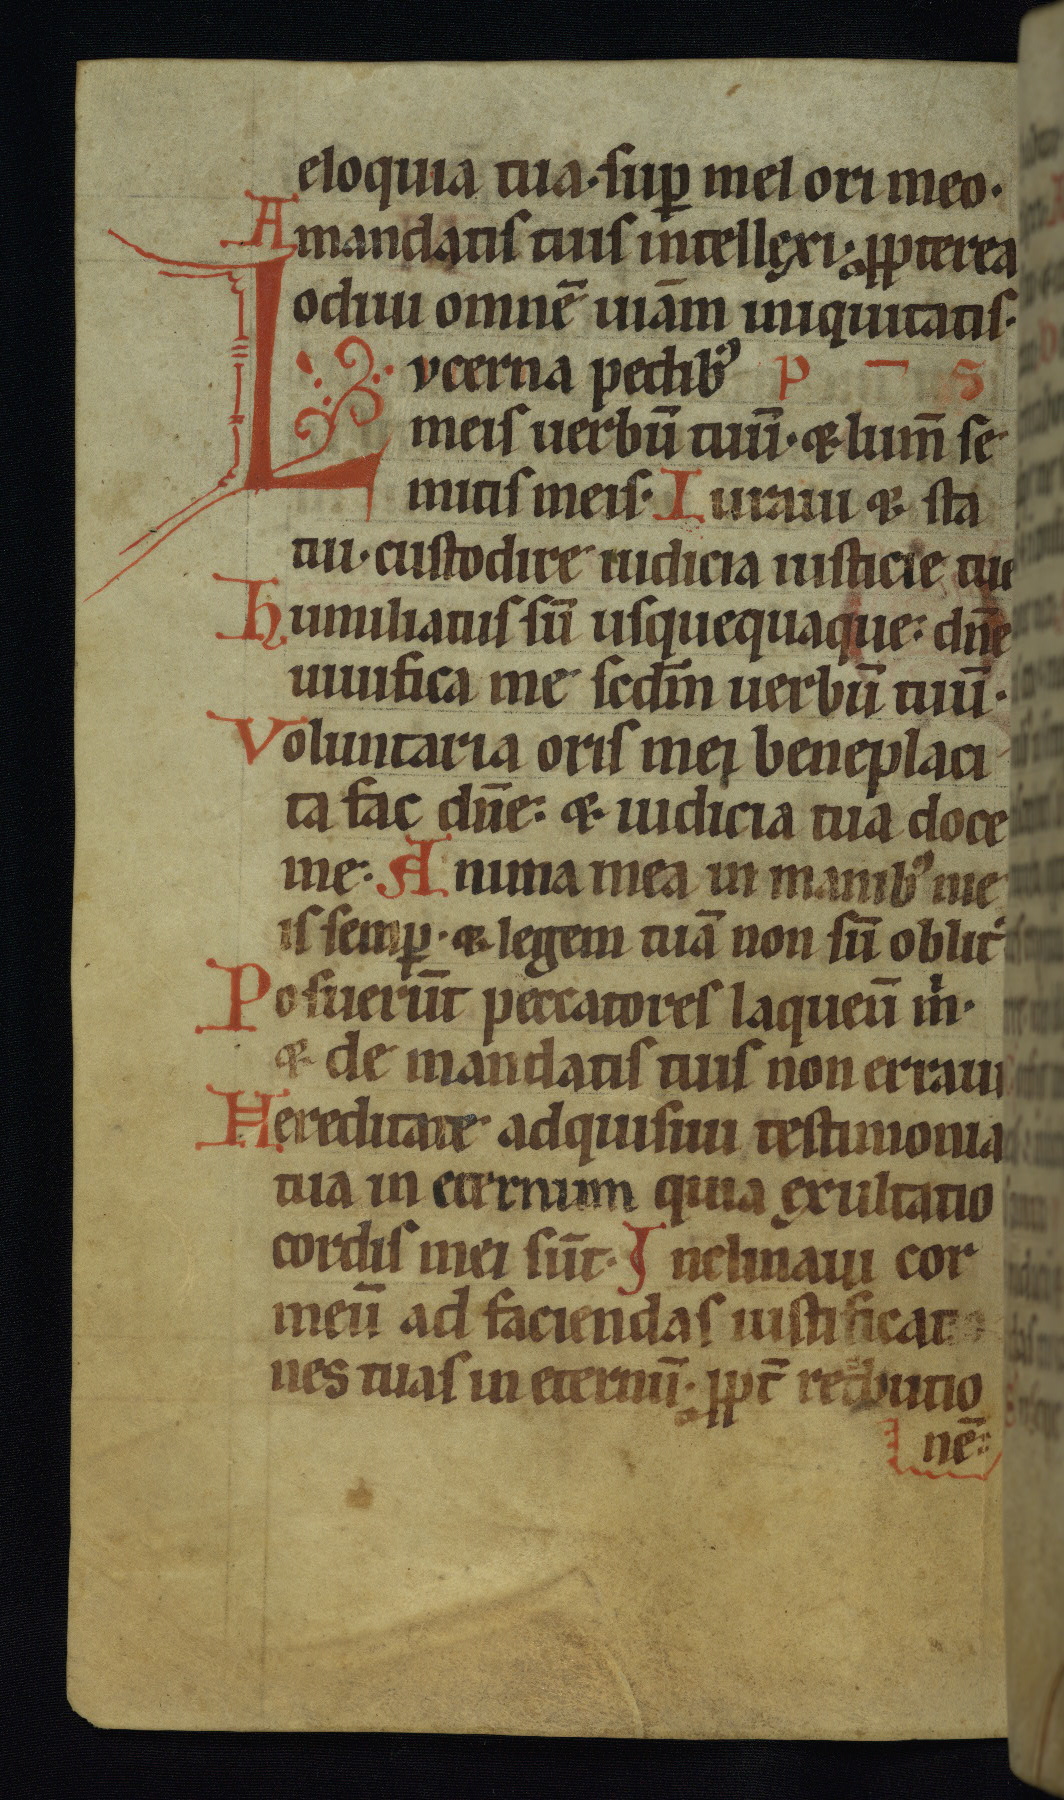 eloquia tua·sup mel ori meo·
Amandatis tuis intellexi· ppterea
odiui omnē uiam iniquitatis·
Lvcerna pedibꝰ p ‾ s
meis uerbū tuū·& lum̄ se
mitis meis· Iuraui & sta
tui·custodire iudicia iusticie tue
Humiliatus sū usquequaque: dn̄e
uiuifica me scdm̄ uerbū tuū·
Voluntaria oris mei beneplaci
ta fac dn̄e: & iudicia tua doce
me· Anima mea in manibꝰ me
is semp·& legem tuā non sū oblitꝰ
Posuerūt peccatores laqueū m̍·
& de mandatis tuis non erraui
Hereditate adquisiui testimonia
tua in eternum quia exultatio
cordis mei sūt· Inclinaui cor
meū ad faciendas iustificatio
nes tuas in eternū· ppt̄ retbutio
nē: